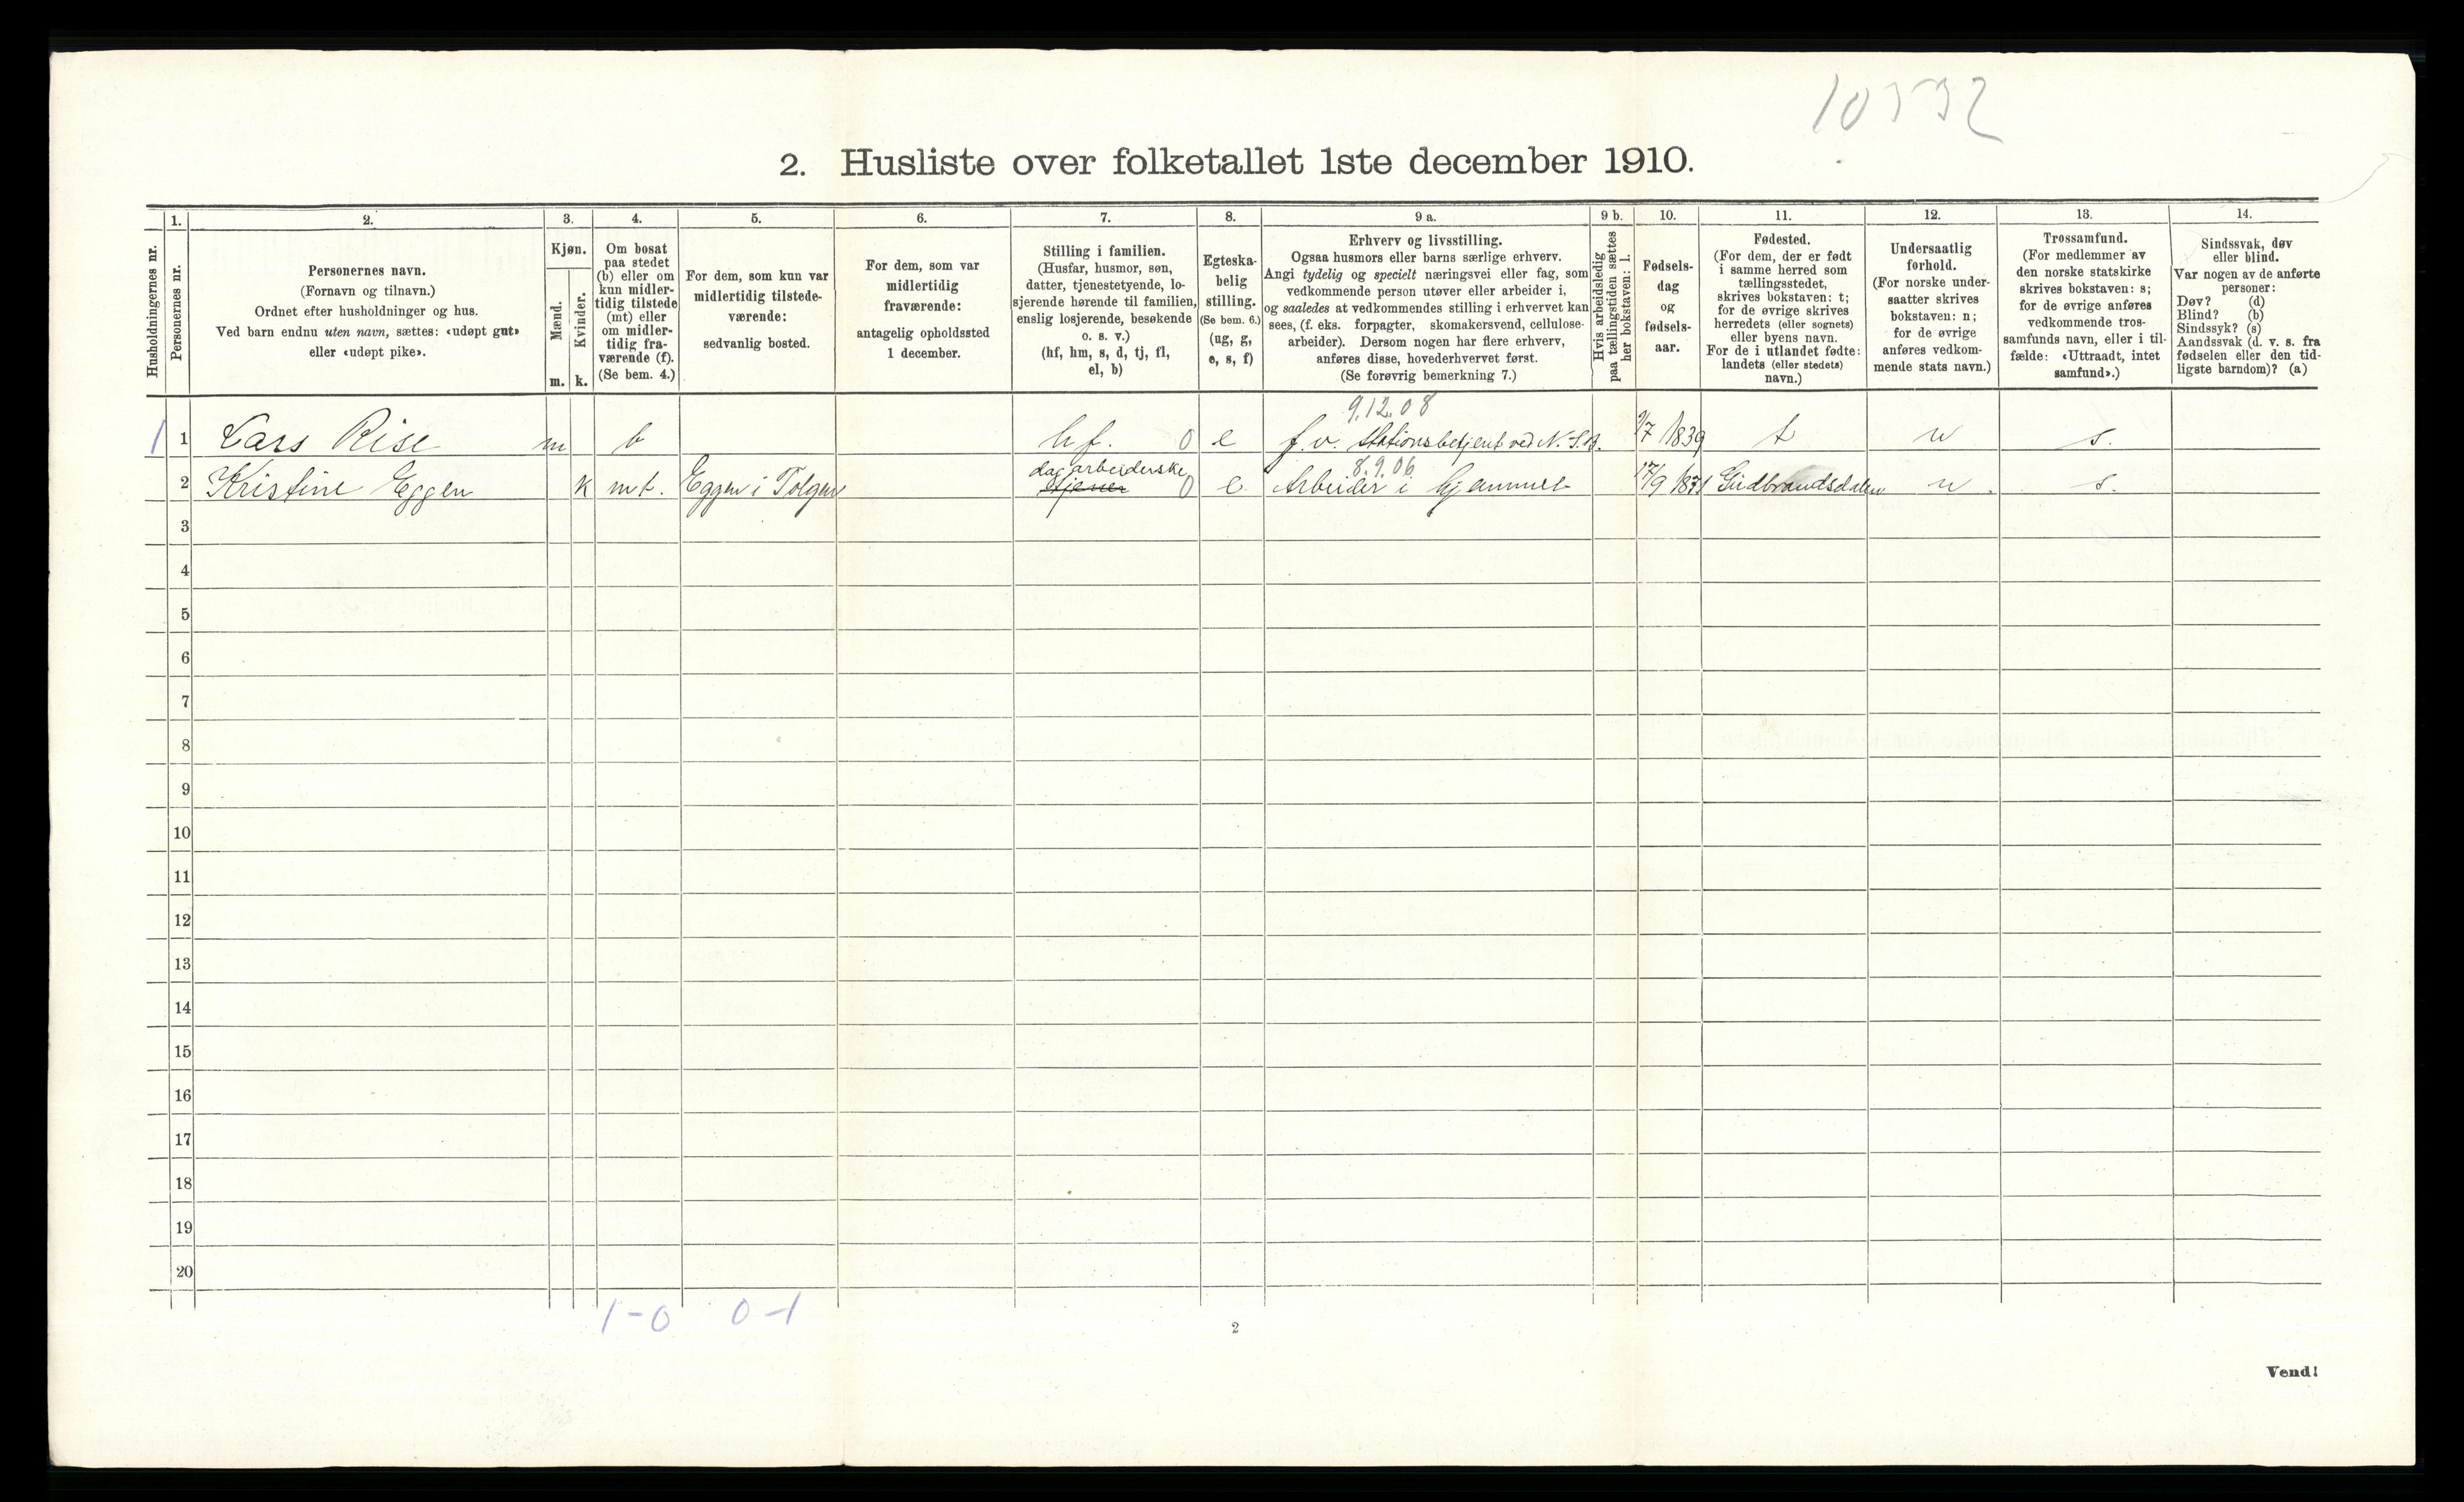 10532
2. Husliste over folketallet 1ste december 1910.
Husholdningernes nr.
1. Personernes nr.
2. Personernes navn. (Fornavn og tilnavn.) Ordnet efter husholdninger og hus. Ved barn endnu uten navn, sættes: «udøpt gut» eller «udøpt pike».
3. Kjøn. Mænd. m. Kvinder. k.
4. Om bosat paa stedet (b) eller om kun midlertidig tilstede (mt) eller om midlertidig fraværende (f). (Se bem. 4.)
5. For dem, som kun var midlertidig tilstedeværende: sedvanlig bosted.
6. For dem, som var midlertidig fraværende: antagelig opholdssted 1 december.
7. Stilling i familien. (Husfar, husmor, søn, datter, tjenestetyende, losjerende hørende til familien, enslig losjerende, besøkende o. s. v.) (hf, hm, s, d, tj, fl, el, b)
8. Egteskabelig stilling. (Se bem. 6.) (ug, g, e, s, f)
9 a. Erhverv og livsstilling. Ogsaa husmors eller barns særlige erhverv. Angi tydelig og specielt næringsvei eller fag, som vedkommende person utøver eller arbeider i, og saaledes at vedkommendes stilling i erhvervet kan sees, (f. eks. forpagter, skomakersvend, cellulosearbeider). Dersom nogen har flere erhverv, anføres disse, hovederhvervet først. (Se forøvrig bemerkning 7.)
9 b. Hvis arbeidsledig paa tællingstiden sættes her bokstaven: l.
10. Fødselsdag og fødselsaar.
11. Fødested. (For dem, der er født i samme herred som tællingsstedet, skrives bokstaven: t; for de øvrige skrives herredets (eller sognets) eller byens navn. For de i utlandet fødte: landets (eller stedets) navn.)
12. Undersaatlig forhold. (For norske undersaatter skrives bokstaven: n; for de øvrige anføres vedkommende stats navn.)
13. Trossamfund. (For medlemmer av den norske statskirke skrives bokstaven: s; for de øvrige anføres vedkommende trossamfunds navn, eller i tilfælde: «Uttraadt, intet samfund».)
14. Sindssvak, døv eller blind. Var nogen av de anførte personer: Døv? (d) Blind? (b) Sindssyk? (s) Aandssvak (d. v. s. fra fødselen eller den tidligste barndom)? (a)
9.12.08
1 1 Lars Rise m b hf. 0 e f.v. Stationsbetjent ved N.S.B. 9/7 1839 t n s.
dagarbeiderske 8.9.06
2 Kristine Eggen k mt. Eggen i Tolgen tjener 0 e Arbeider i hjemmet 17/9 1871 Gudbrandsdalen n. s.
3
4
5
6
7
8
9
10
11
12
13
14
15
16
17
18
19
20
1-0 0-1
2
Vend!